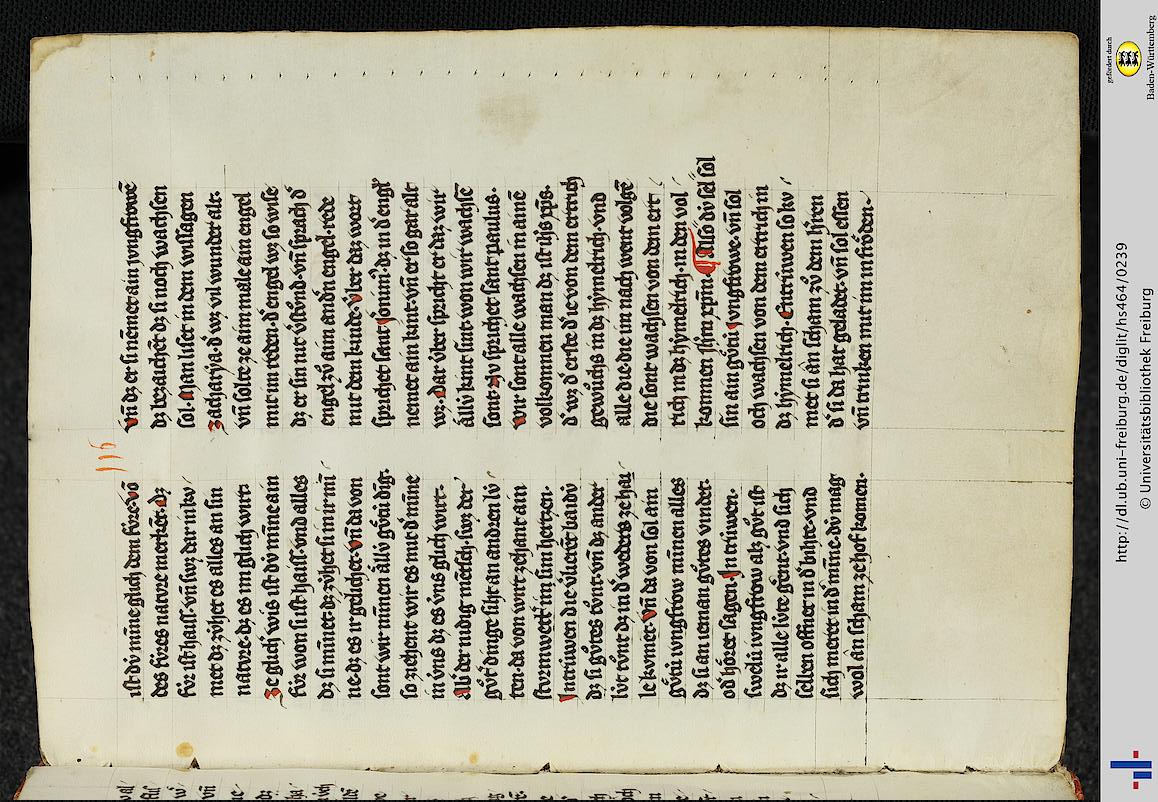 116
ist dv́ mīne glich dem fúre · vō
des fúres natvre merket · dz
fúr ist haiss · vn̄ swz dar in kv
met dz zv́het es alles an sin
natvre · dz es im glich wirt ·
Ze glich wis ist dv́ mīne ain
fúr won si ist haiss · vnd alles
dz si minet dz zv́het si in ir mī
ne · dz es ir gelichet · vn̄ da von
sont wir minen állv́ gv̊tv́ ding ·
so ziehent wir es mit d' mīne
in v́ns dz es v́ns glich wirt ·
Ab' der nidig mēsch · swz der
gv̊t' dinge siht an andren lv́
ten · da von wirt zehant ain
sturmwert in sim hertzen ·
Intriuwen die v́lieret baidv́
dz si gv̊tes tv̊nt · vn̄ dz ander
lv́t tv̊nt dz in d' weders ze hai
le kvmet · vn̄ da von sol ain
gv̊tv́ ivngfrow mīnen alles
dz si an ieman gv̊tes vindet ·
od hóret sagen · In triuwen ·
swelú ivngfrow alz gv̊t ist ·
dz ir alle lv́te gēnt · vnd sich
selben offnet in d' bihte · vnd
sich meret in d' mīne · dv́ mag
wol ān scham ze hof komen ·
vn̄ dz er si nēmet ain jvngfrowē
dz bezaichēt dz si noch wachsen
sol · Man liset in dem wissagen
zacharya · d' wz vil wunder alt ·
vn̄ solte ze aim male ain engel
mit im reden · d' engel wz so wise
dz er sin nit v́stv̊nd · vn̄ sprach d'
engel zv̊ aim andn engel · rede
mit dem kinde · v́ber daz wort
sprichet sant Jeronim' · dz in d' engel
nemet ain kint · vn̄ er so gar alt
wz · Dar v́ber spricht er daz wir
állv́ kint sint · won wir wachsē
sont · als sprichet sant paulus ·
wir sont alle wachsen in ainē
volkomnen man dz ist ihs xps ·
d' wz d' erste d' ie von dem ertrich
gewůchs in dz hymelrich · vnd
alle die die im nach went volgē
die sont wachsen von dem ert
rich in dz hymelrich · in den vol
komnen ihm xpm · ¶ Also dv́ sel sol
sin ain gv̊tv́ jvngfrowe · vn̄ sol
och wachsen von dem ertrich in
dz hymelrich · Entriuwen so kv
met si ān scham zv̊ dem h'ren
d' si da har geladet · vn̄ sol essen
vn̄ trinken mit im in frǒden ·
gefördert durch
Baden-Württemberg
http://dl.ub.uni-freiburg.de/diglit/hs464/0239
© Universitätsbibliothek Freiburg